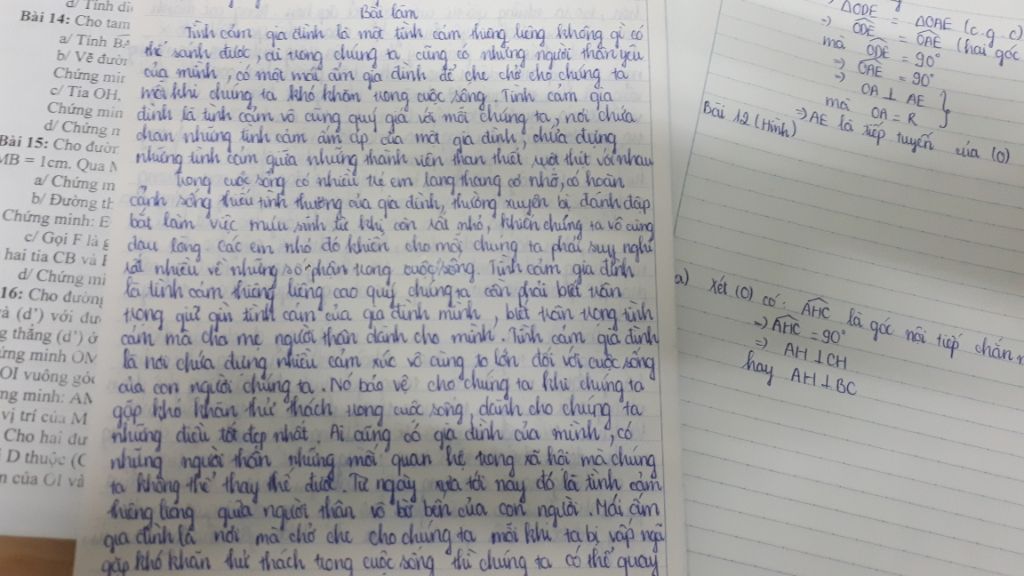 d/ Tính di
Bài 14: Cho tam
a/ Tính BA
b/ Vẽ đườn
Chứng min
c/ Tia OH,
Chứng min
d/ Chứng n
Bài 15: Cho đườn
MB = 1cm. Qua M
a/ Chứng m
b/ Đường th
Chứng minh: E
c/ Gọi F là g
hai tia CB và
d/ Chứng mi
16: Cho đường
và (d') với đư
g thẳng (d') ở
ứng minh OM
OI vuông góc
ng minh: AM
vị trí của M
Cho hai đư
D thuộc (C
n của OI và
Bài làm
Tình cảm gia đình là một tình cảm thiêng liêng không gì có
thể sánh được, ai trong chúng ta cũng có những người thân yêu
của mình, có một mái ấm gia đình để che chở cho chúng ta
mỗi khi chúng ta khó khăn trong cuộc sống. Tình cảm gia
đình là tình cảm vô cùng quý giá với mỗi chúng ta, nơi chứa
chan những tình cảm ấm áp của một gia đình, chứa đựng
những tình cảm giữa những thành viên thân thiết, ruột thịt với nhau
trong cuộc sống có nhiều trẻ em lang thang cơ nhỡ, có hoàn
cảnh sống thiếu tình thương của gia đình, thường xuyên bị đánh đập
bắt làm việc mưu sinh từ khi còn rất nhỏ, khiến chúng ta vô cùng
đau lòng. Các em nhỏ đó khiến cho mỗi chúng ta phải suy nghĩ
rất nhiều về những số phận trong cuộc sống. Tình cảm gia đình
là tình cảm thiêng liêng cao quý chúng ta cần phải biết trân
trọng giữ gìn tình cảm của gia đình mình, biết trân trọng tình
cảm mà cha mẹ người thân dành cho mình. Tình cảm gia đình
là nơi chứa đựng nhiều cảm xúc vô cùng to lớn đối với cuộc sống
của con người chúng ta. Nó bảo vệ cho chúng ta khi chúng ta
gặp khó khăn thử thách trong cuộc sống, dành cho chúng ta
những điều tốt đẹp nhất. Ai cũng có gia đình của mình, có
những người thân, những mối quan hệ trong xã hội mà chúng
ta không thể thay thế được. Từ ngày xưa tới nay đó là tình cảm
thiêng liêng giữa người thân vô bờ bến của con người. Mái ấm
gia đình là nơi mà chở che cho chúng ta mỗi khi ta bị vấp ngã
gặp khó khăn thử thách trong cuộc sống thì chúng ta có thể quay
ΔODE = ΔOAE (c.g.c)
⇒ ODE = OAE (hai góc
mà ODE = 90°
⇒ OAE = 90°
⇒ OA ⊥ AE
mà OA = R
⇒ AE là tiếp tuyến của (O)
Bài 12 (Hình)
a) Xét (O) có: AHC là góc nội tiếp chắn
⇒ AHC = 90°
⇒ AH ⊥ CH
hay AH ⊥ BC